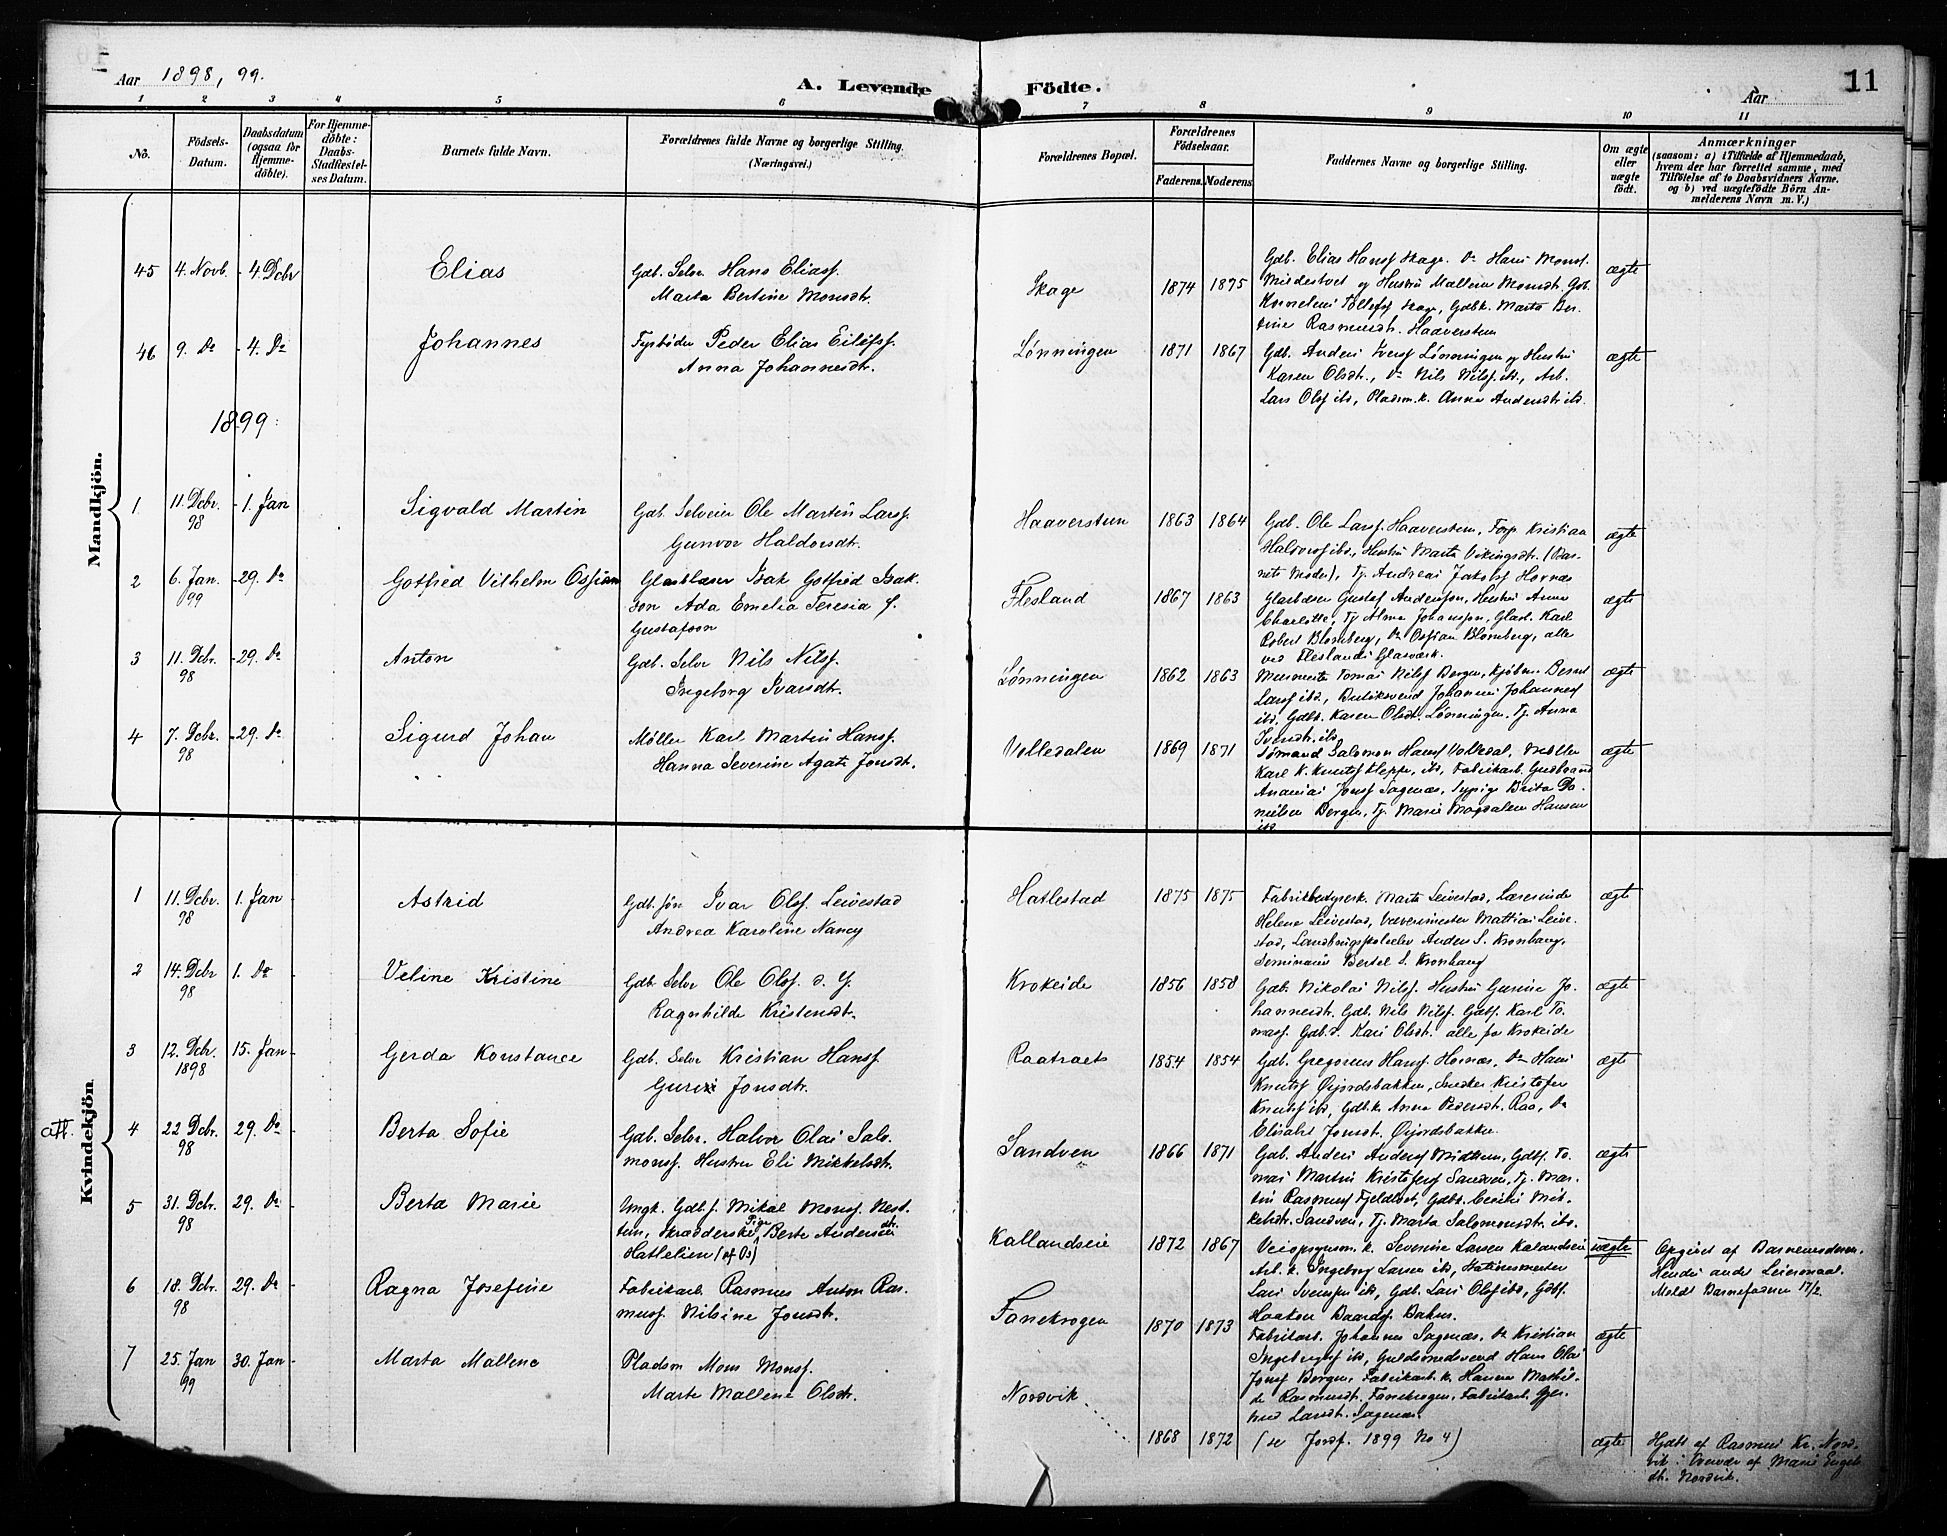 Aar 1898, 99.
A. Levende Födte.
Aar
11
1 2 3 4 5 6 7 8 9 10 11
No.
Födsels-Datum.
Daabsdatum (ogsaa for Hjemmedöbte).
For Hjemmedöbte: Daabs-Stadfæstelses Datum.
Barnets fulde Navn.
Forældrenes fulde Navne og borgerlige Stilling. (Næringsvei.)
Forældrenes Bopæl.
Forældrenes Födselsaar.
Faderens. Moderens.
Faddernes Navne og borgerlige Stilling.
Om ægte eller uægte födt.
Anmærkninger
(saasom: a) i Tilfælde af Hjemmedaab,
hvem der har forrettet samme, med
Tilföielse af to Daabsvidners Navne.
og b) ved uægtefödte Börn An-
melderens Navn m. V.)
Mandkjön.
45 4. Novb. - 4. Dcbr Elias
Gdb. Selv. Hans Eliass.
Marta Bertine Monsdt.
Skage 1874 1875
Gdb. Elias Hanss Skage. Do Hans Monss.
Mildestvet og Hustru Mallene Monsdt, Gdb.
Kornelius Tollefss Skage, Gdbk. Marta Ber-
tine Rasmusdt. Haaverstein
ægte
46 9. Do - 4. Do Johannes
Fyrbøder Peder Elias Eilifss.
Anna Johannesdt.
Lønningen 1871 1867
Gdb. Anders Iverss Lønningen og Hustru
Karen Olsdt., Do Nils Nilss. ibd., Arb.
Lars Olss ibd, Pladsm.k. Anna Andersdt ibd.
ægte
1899:
1 11. Dcbr. 98 - 1. Jan Sigvald Martin
Gdb. Selveier Ole Martin Larss.
Gunvor Haldorsdt.
Haaverstein 1863 1864
Gdb. Ole Larss. Haaverstein, Forp. Kristian
Haldorss ibd, Hustru Marta Vikingsdt. (Bar-
nets Moder), Tj. Andreas Jakobss Hornæs
ægte
2 6. Jan. 99 - 29. Do Gotfred Vilhelm Ossian
Glasblæser Isak Gotfred Isak-
son Ada Emelia Teresia f.
Gustafson
Flesland 1867 1863
Glasblæser Gustaf Anderson, Hustru Anna
Charlotte, Tj Alma Johansson, Glasbl. Karl
Robert Blomberg, Do Ossian Blomberg, alle
ved Fleslands Glasværk.
ægte
3 11. Dcbr. 98 - 29. Do Anton
Gdb. Selv Nils Nilss.
Ingeborg Ivarsdt.
Lønningen 1862 1863
Tomas Nilss Bergen, Kjøbm. Bernt
Larss ibd, Butiksvend Johannes Johanness
ibd, Gdbk. Karen Olsdt. Lønningen, Tj. Anna
Iversdt. ibd
ægte
4 7. Dcbr. 98 - 29. Do Sigurd Johan
Møller Karl Martin Hanss.
Hanna Severine Agate Jonsdt.
Volledalen 1869 1871
Sømand Salomon Hanss Volledal, Møller
Karl K. Knutss Kleppe, ibd, Fabrikarb. Gudbrand
Ananias Jonss Sagenæs, Sypige Berta Da-
nielsen Bergen, Tj. Marie Magdalene Hansen
ibd
ægte
Kvindekjön.
1 11. Dcbr. 98 1. Jan Astrid
Gdb.søn Ivar Olss. Leivestad
Andrea Karoline Nancy
Hatlestad 1875 1875
Fabrikbestyrerk. Marta Leivestad, Lærerinde
Helene Leivestad, Vævermester Mattias Leive-
stad, Landbrugsskoleelev Anders S. Kronhaug,
Seminarist Bertel S. Kronhaug
ægte
2 14. Dcbr 98 1. Do - Veline Kristine
Gdb. Selv Ole Olss. d. Y.
Ragnhilde Kristensdt.
Krokeide 1856 1858
Gdb. Nikolai Nilss. Hustru Gurine Jo-
hannesdt. Gdb. Nils Nilss. Gdbs. Karl To-
mass. Gdb.d. Kari Olsdt. alle fra Krokeide
ægte
3 12. Dcbr. 1898 15. Jan - Gerda Konstance
Gdb. Selv Kristian Hanss
Guri Jonsdt.
Raatræet 1854 1854
Gdb. Gregorius Hanss. Hornæs, Do Hans
Knutss Øijordsbakken, Snedker Kristofer
Knutss ibd, Gdbk. Anna Pedersdt. Raa, Do
Elisabet Jonsdt. Øijordsbakken
ægte
att. 4 22 Dcbr. 98 29. Do - Berta Sofie
Gdb. Selv. Halvor Olai Salo-
monss. Hustru Eli Mikkelsdt.
Sandven 1866 1871
Gdb. Anders Anderss Midttun, Gdbs. To-
mas Martin Kristoferss Sandven, Tj. Mar-
tin Rasmuss Fjeldtvet, Gdbd. Cecilie Mik-
kelsdt. Sandven, Tj. Marta Salomonsdt. ibd.
ægte
5 31. Dcbr. 98 29. Do - Berta Marie
Ungk. Gdb.s. Mikal Monss. Nest-
tun, Skrædderske, Pige Berte Andersdt
Hatlelien (af Os)
Kallandseie 1872 1867
Veiopsynsm.k. Severine Larsen Kalandseie
Arb.k. Ingeborg Larsen ibd, Stationsmester
Lars Svenssen ibd, Gdb. Lars Olss ibd, Gdbs.
Haakon Baardss. Bahus.
uægte
Opgivet af Barnemoderen.
Hendes andet Leiermaal.
Meldt Barnefaderen 17/2
6 18. Dcbr. 98 29. Do - Ragna Josefine
Fabrikarb. Rasmus Anton Ras-
muss. Nilsine Jonsdt.
Fanekrogen 1870 1873
Fabrikarb. Johannes Sagenæs, Do Kristian
Ingebrigtss ibd, Guldsmedsvend Hans Olai
Jonss Bergen, Fabrikarb.k. Hanna Mathil-
de Rasmusdt. Fanekrogen, Fabrikarb. Gjer-
trud Larsdt. Sagenæs.
ægte
7 25. Jan 99 30. Jan - Marta Mallene
Pladsm Mons Monss.
Marte Mallene Olsdt.
Nordvik 1868 1872
(se Jords. 1899 No 4)
ægte
Hjdbt af Rasmus Kr. Nord-
vik i Overvær af Marie Engels-
dt. Nordvik.